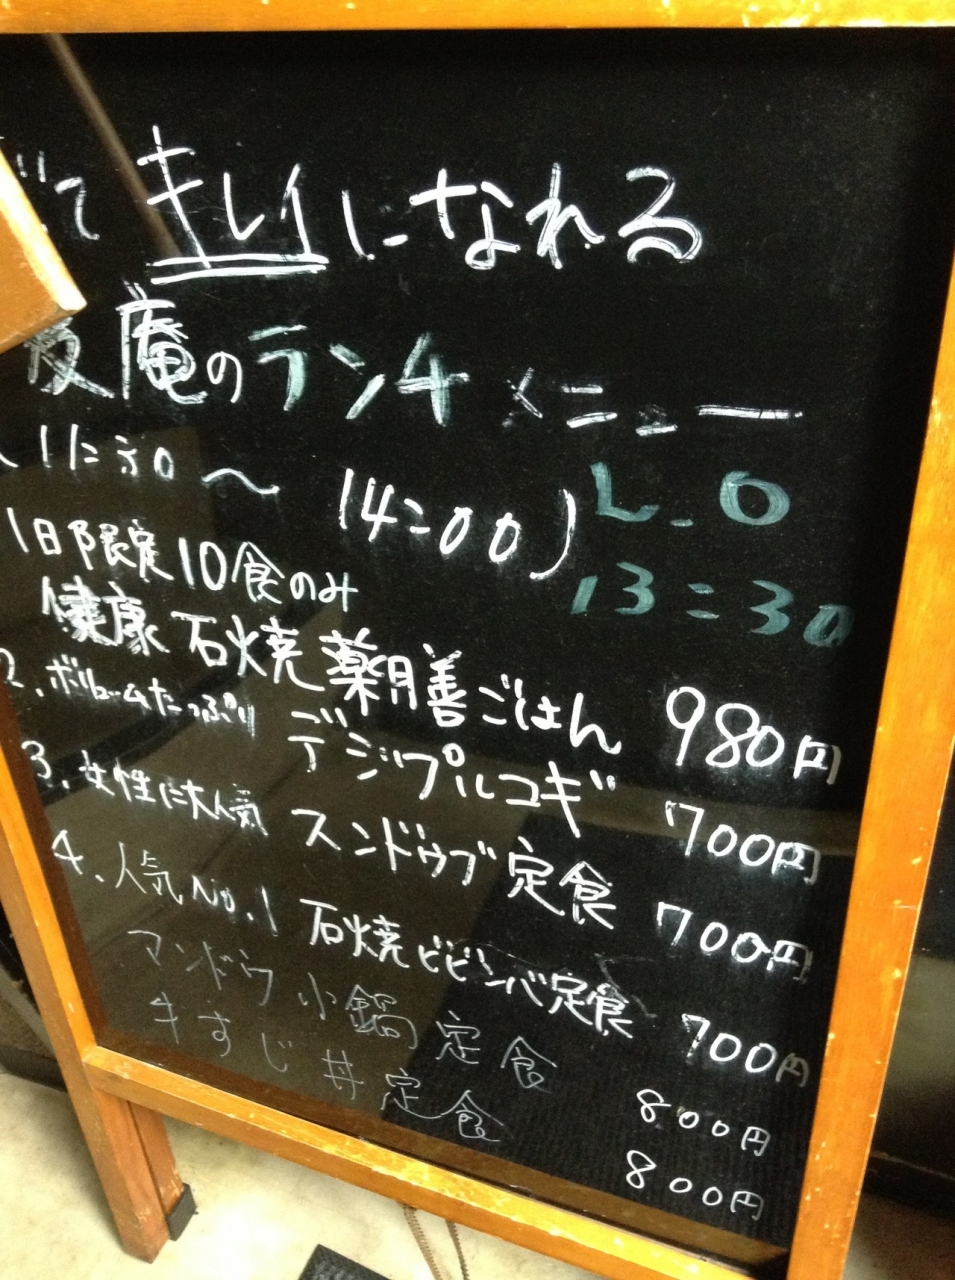 べて キレイになれる
庵のランチメニュー
(11:30～14:00) L.O 13:30
1日限定10食のみ
健康 石焼薬膳ごはん 980円
2. ボリュームたっぷり デジプルコギ 700円
3. 女性に大人気 スンドゥブ定食 700円
4. 人気No.1 石焼ビビンバ定食 700円
マンドウ小鍋定食 800円
牛すじ丼定食 800円